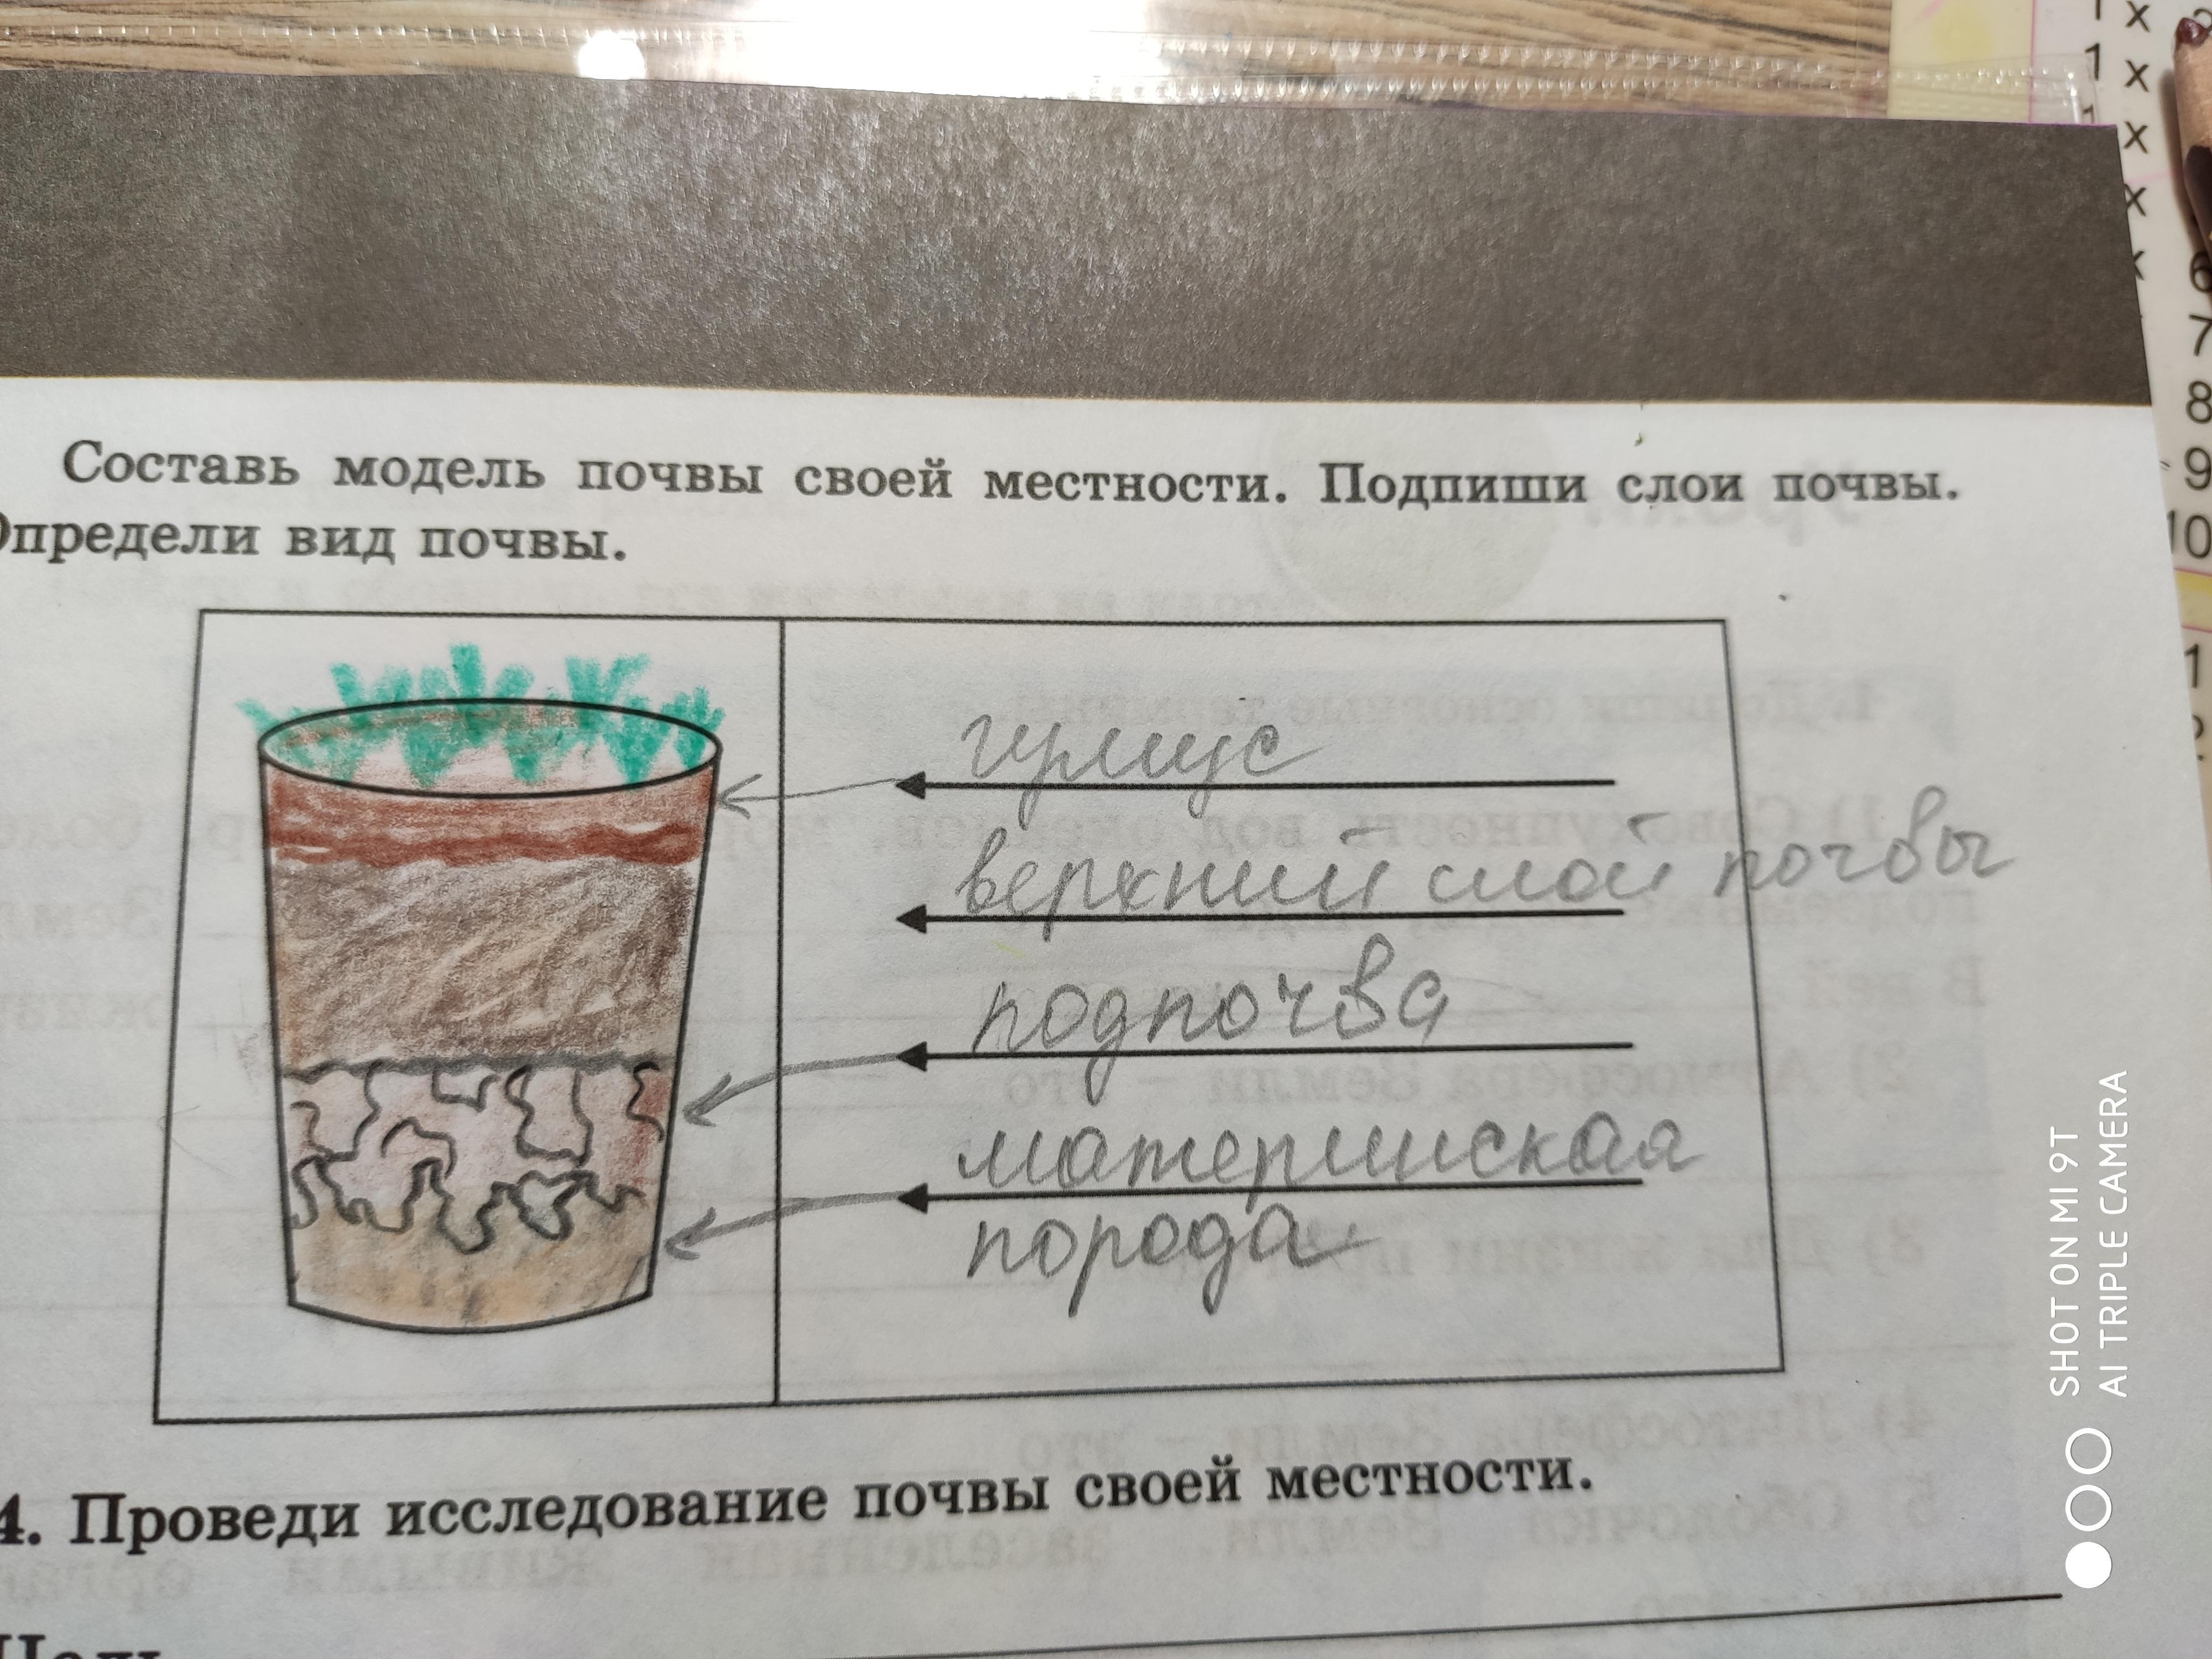 Составь модель почвы своей местности. Подпиши слои почвы.
Определи вид почвы.
гумус
верхний слой почвы
подпочва
материнская
порода
4. Проведи исследование почвы своей местности.
Цель
SHOT ON MI 9T
AI TRIPLE CAMERA
1 x
x
x
x
6
7
8
9
10
1
2